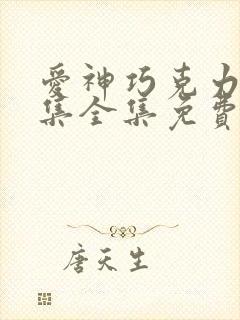 愛神巧克力
集全集免費
唐天生